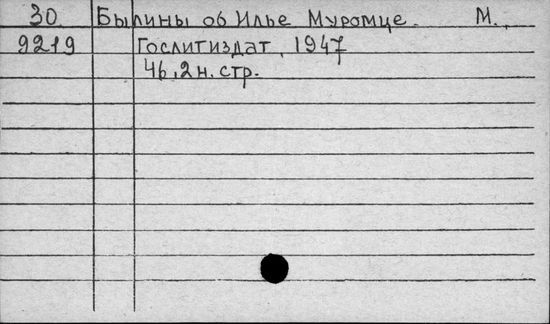 30. Былины об Илье Муромце. М.,
9219 Гослитиздат, 1947
46,2 н. стр.